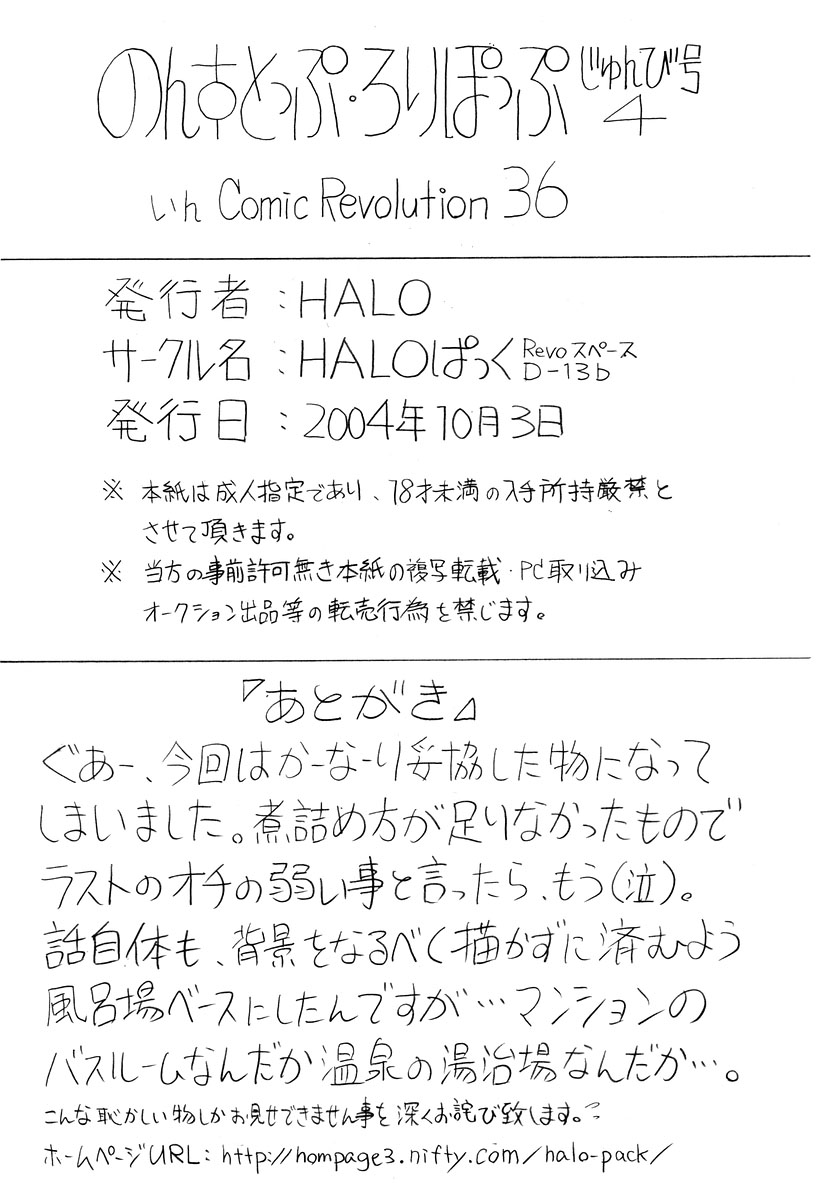 のんすとっぷ・ろりぽっぷ じゅんび号4
いん Comic Revolution 36
発行者：HALO
サークル名：HALOぱっく Revoスペース D-13b
発行日：2004年10月3日
※ 本紙は成人指定であり、18才未満の入手所持厳禁と
させて頂きます。
※ 当方の事前許可無き本紙の複写転載・PC取り込み
オークション出品等の転売行為を禁じます。
『あとがき』
ぐあー、今回はかーなーり妥協した物になって
しまいました。煮詰め方が足りなかったもので
ラストのオチの弱い事と言ったら、もう（泣）。
話自体も、背景をなるべく描かずに済むよう
風呂場ベースにしたんですが…マンションの
バスルームなんだか温泉の湯治場なんだか…。
こんな恥かしい物しかお見せできません事を深くお詫び致します。
ホームページURL：http://hompage3.nifty.com/halo-pack/